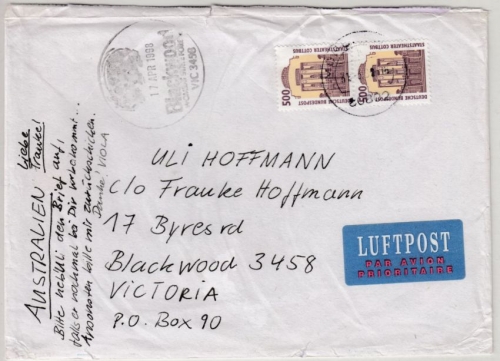 17 APR 1998
Blackwood
VIC 3458
500
STAATSTHEATER COTTBUS
DEUTSCHE BUNDESPOST
500
STAATSTHEATER COTTBUS
DEUTSCHE BUNDESPOST
ULI HOFFMANN
c/o Frauke Hoffmann
17 Byres rd
Blackwood 3458
VICTORIA
P.O. Box 90
LUFTPOST
PAR AVION
PRIORITAIRE
AUSTRALIEN
Liebe
Frauke!
Bitte den Brief auf,
falls er nochmal bei Dir
Ansonsten bitte mir zurückschicken.
Danke! VIOLA